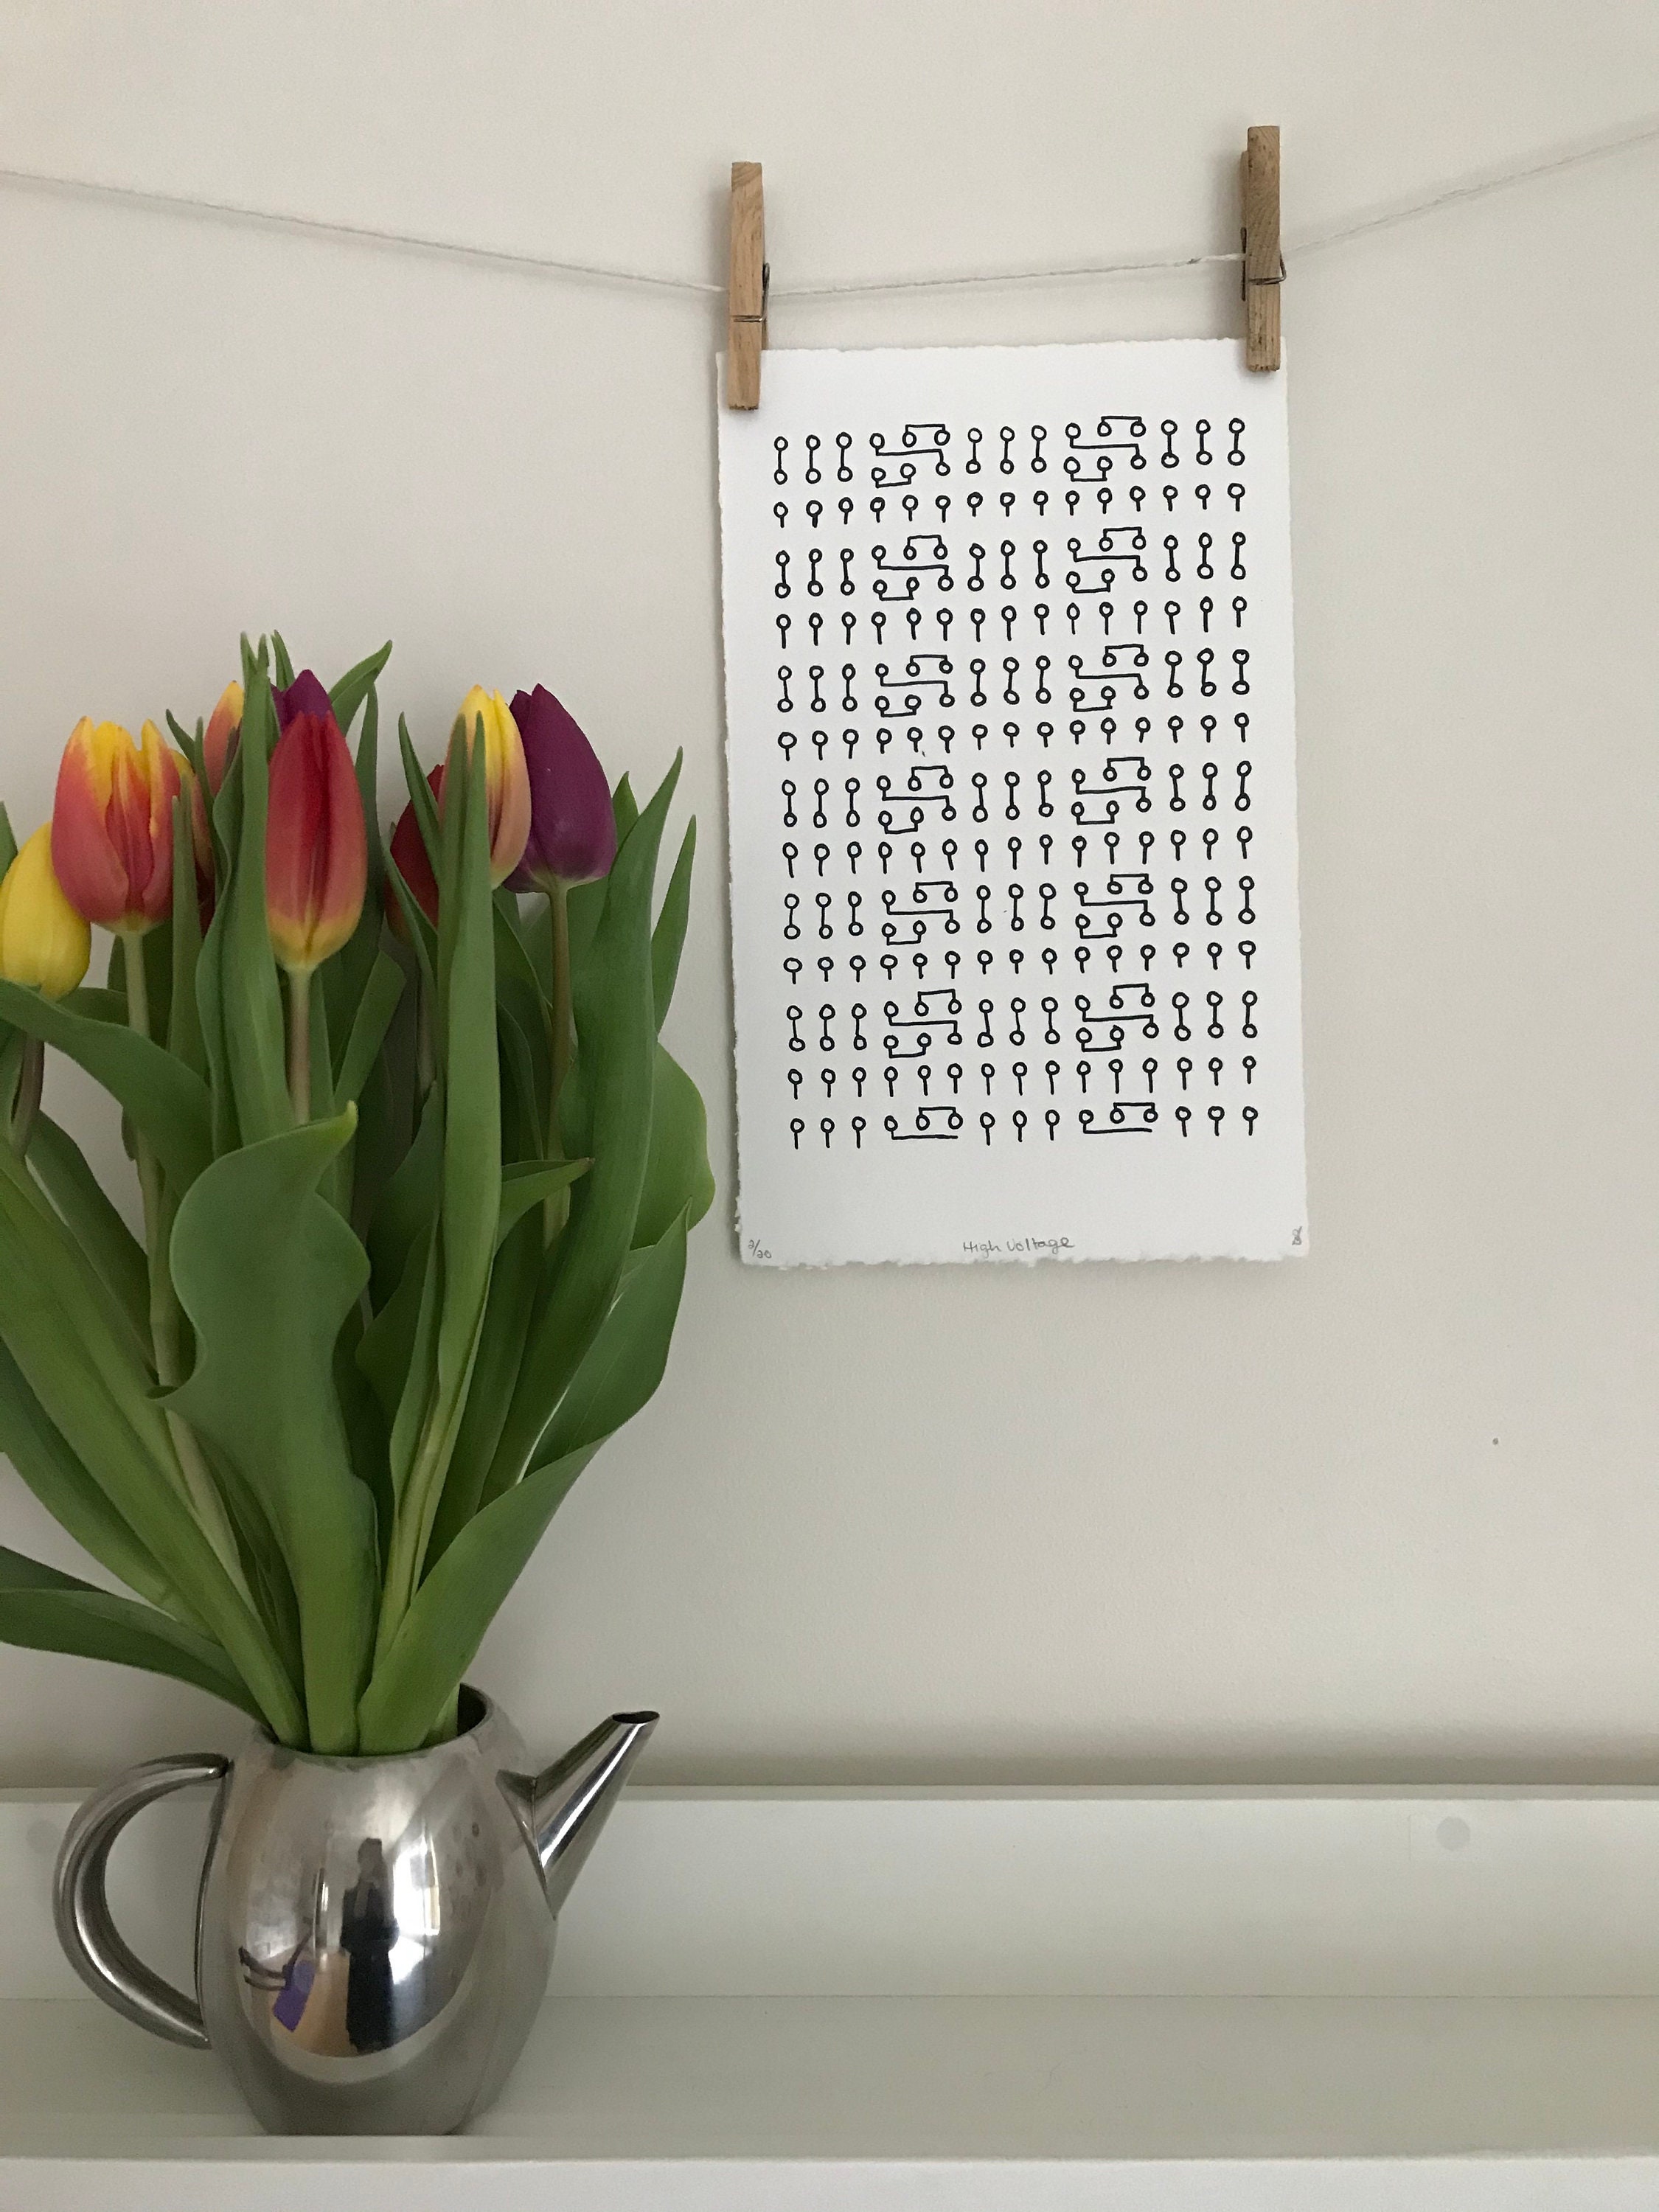 2/20 High Voltage